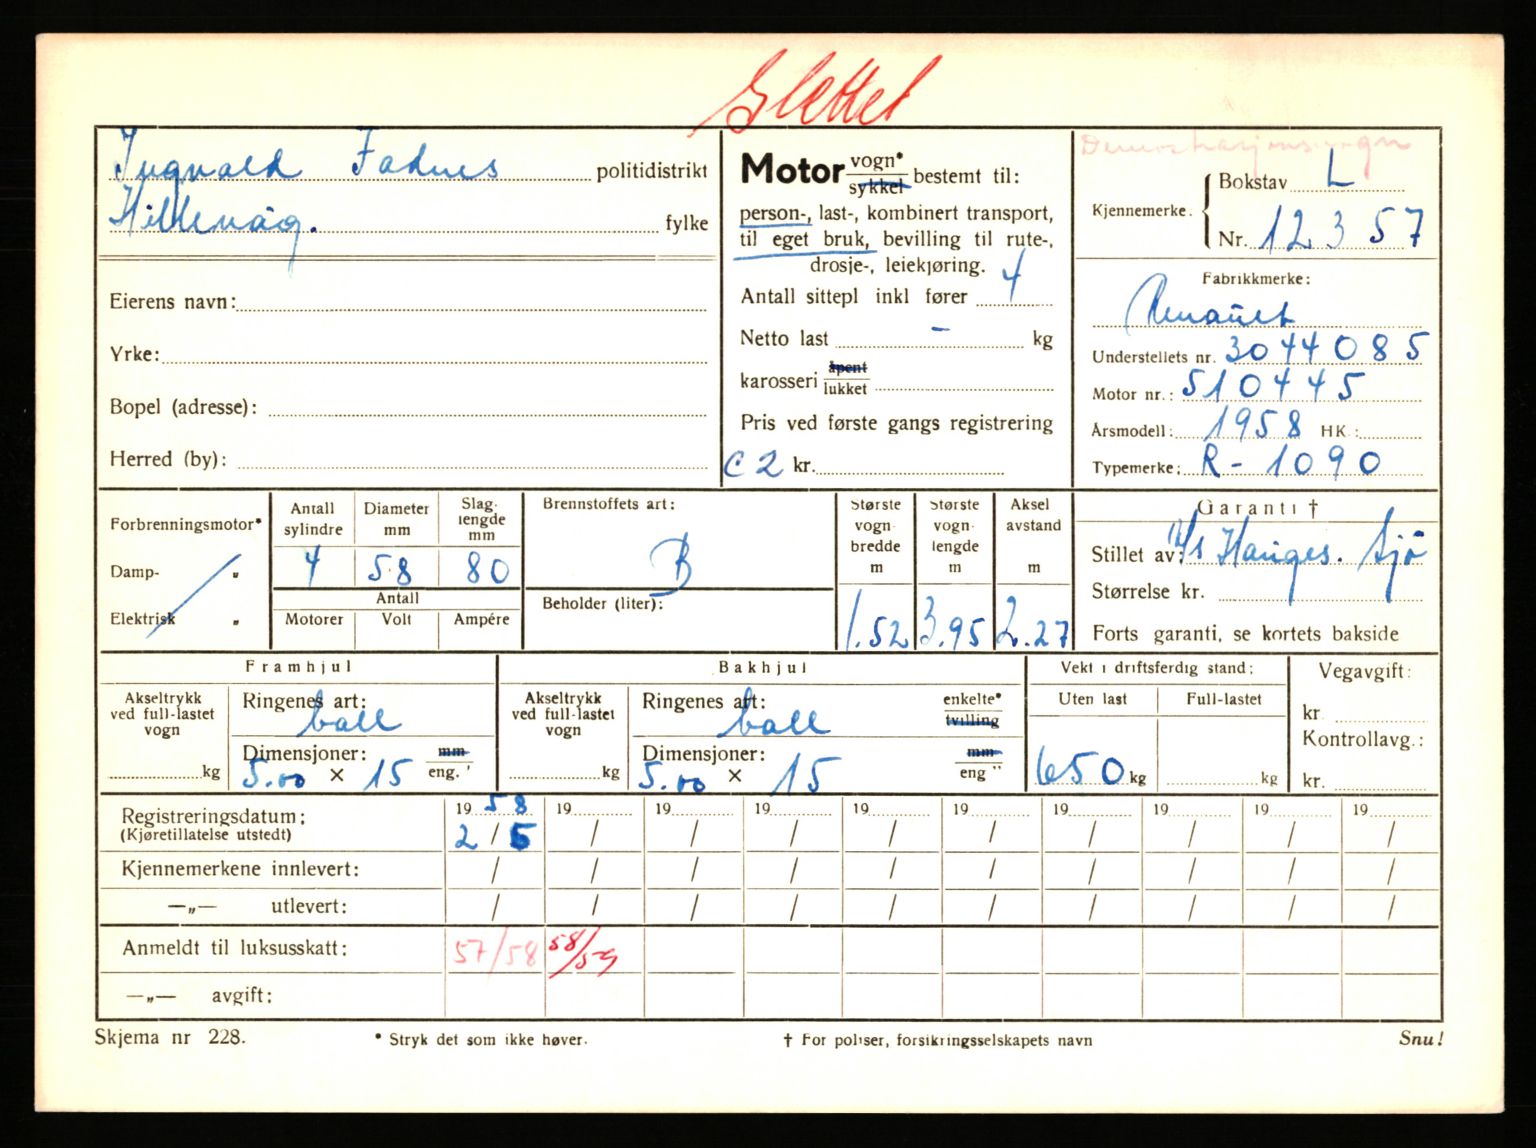 Slettet
Ingvald Fadnes politidistrikt
Hillevåg. fylke
Eierens navn:
Yrke:
Bopel (adresse):
Herred (by):
Motor vogn* sykkel bestemt til:
person-, last-, kombinert transport,
til eget bruk, bevilling til rute-,
drosje-, leiekjøring.
Antall sittepl inkl fører 4
Netto last - kg
karosseri åpent lukket
Pris ved første gangs registrering
C2 kr.
Demonstrasjonsvogn
Kjennemerke. Bokstav L
Nr. 12357
Fabrikkmerke:
Renault
Understellets nr. 3044085
Motor nr.: 510445
Årsmodell: 1958 HK.:
Typemerke: R-1090
Forbrenningsmotor*
Damp- "
Elektrisk "
Antall sylindre 4
Diameter mm 58
Slag. lengde mm 80
Antall
Motorer Volt Ampére
Brennstoffets art:
B
Beholder (liter):
Største vogn bredde m 1.52
Største vogn lengde m 3.95
Aksel avstand m 2.27
Garanti †
Stillet av: Hauges. Sjø
Størrelse kr.
Forts garanti, se kortets bakside
Framhjul
Akseltrykk ved full-lastet vogn
kg
Ringenes art: ball
Dimensjoner: mm
5.00 × 15 eng. '
Bakhjul
Akseltrykk ved full-lastet vogn
kg
Ringenes art: ball enkelte* tvilling
Dimensjoner: mm
5.00 × 15 eng "
Vekt i driftsferdig stand:
Uten last Full-lastet
650 kg kg
Vegavgift:
kr
Kontrollavg.:
kr.
Registreringsdatum: 19 58 19 19 19 19 19 19 19 19 19
(Kjøretillatelse utstedt) 2/5 / / / / / / / / /
Kjennemerkene innlevert: / / / / / / / / / /
—„— utlevert: / / / / / / / / / /
Anmeldt til luksusskatt: 57/58 58/59
—„— avgift:
Skjema nr 228. * Stryk det som ikke høver. † For poliser, forsikringsselskapets navn Snu!